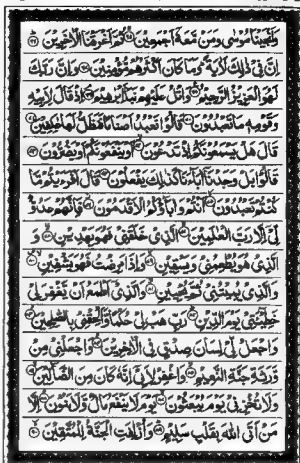 وَاَنْجَيْنَا مُوْسٰى وَمَنْ مَّعَهٗۤ اَجْمَعِيْنَ ثُمَّ اَغْرَقْنَا الْاٰخَرِيْنَ
اِنَّ فِيْ ذٰلِكَ لَاٰيَةً وَمَا كَانَ اَكْثَرُهُمْ مُّؤْمِنِيْنَ وَاِنَّ رَبَّكَ
لَهُوَ الْعَزِيْزُ الرَّحِيْمُ وَاتْلُ عَلَيْهِمْ نَبَاَ اِبْرٰهِيْمَ اِذْ قَالَ لِاَبِيْهِ
وَقَوْمِهٖ مَا تَعْبُدُوْنَ قَالُوْا نَعْبُدُ اَصْنَامًا فَنَظَلُّ لَهَا عٰكِفِيْنَ
قَالَ هَلْ يَسْمَعُوْنَكُمْ اِذْ تَدْعُوْنَ اَوْ يَنْفَعُوْنَكُمْ اَوْ يَضُرُّوْنَ
قَالُوْا بَلْ وَجَدْنَاۤ اٰبَآءَنَا كَذٰلِكَ يَفْعَلُوْنَ قَالَ اَفَرَءَيْتُمْ مَّا
كُنْتُمْ تَعْبُدُوْنَ اَنْتُمْ وَاٰبَآؤُكُمُ الْاَقْدَمُوْنَ فَاِنَّهُمْ عَدُوٌّ
لِّيْۤ اِلَّا رَبَّ الْعٰلَمِيْنَ الَّذِيْ خَلَقَنِيْ فَهُوَ يَهْدِيْنِ وَ
الَّذِيْ هُوَ يُطْعِمُنِيْ وَيَسْقِيْنِ وَاِذَا مَرِضْتُ فَهُوَ يَشْفِيْنِ
وَالَّذِيْ يُمِيْتُنِيْ ثُمَّ يُحْيِيْنِ وَالَّذِيْۤ اَطْمَعُ اَنْ يَّغْفِرَ لِيْ
خَطِيْٓـَٔتِيْ يَوْمَ الدِّيْنِ رَبِّ هَبْ لِيْ حُكْمًا وَّاَلْحِقْنِيْ بِالصّٰلِحِيْنَ
وَاجْعَلْ لِّيْ لِسَانَ صِدْقٍ فِي الْاٰخِرِيْنَ وَاجْعَلْنِيْ مِنْ
وَّرَثَةِ جَنَّةِ النَّعِيْمِ وَاغْفِرْ لِاَبِيْۤ اِنَّهٗ كَانَ مِنَ الضَّآلِّيْنَ
وَلَا تُخْزِنِيْ يَوْمَ يُبْعَثُوْنَ يَوْمَ لَا يَنْفَعُ مَالٌ وَّلَا بَنُوْنَ اِلَّا
مَنْ اَتَى اللّٰهَ بِقَلْبٍ سَلِيْمٍ وَاُزْلِفَتِ الْجَنَّةُ لِلْمُتَّقِيْنَ